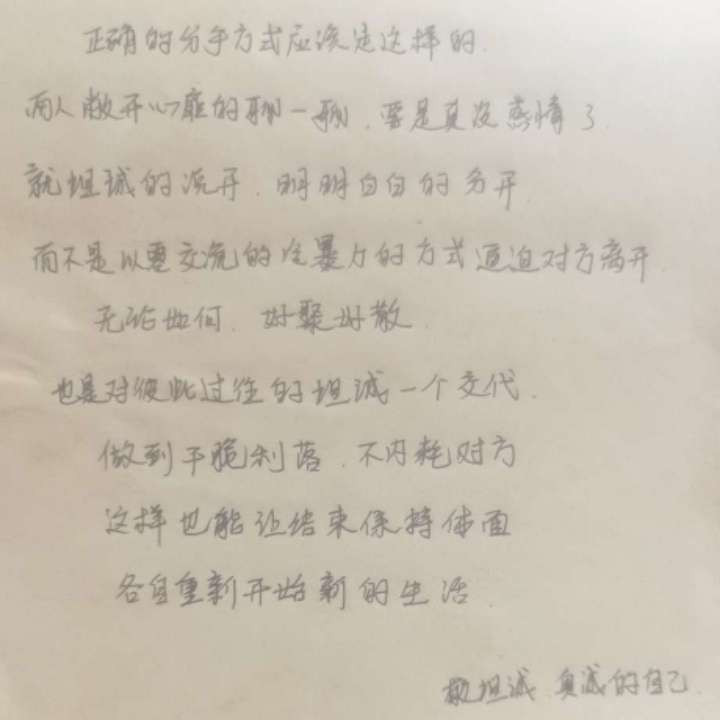 正确的分手方式应该是这样的.
两人敞开心扉的聊一聊,要是真没感情了
就坦诚的说开,明明白白的分开
而不是以零交流的冷暴力的方式逼迫对方离开
无论如何,好聚好散.
也是对彼此过往的坦诚一个交代.
做到干脆利落,不内耗对方
这样也能让结束保持体面
各自重新开始新的生活.
敬坦诚、真诚的自己